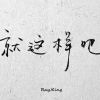 就这样吧
RayKing